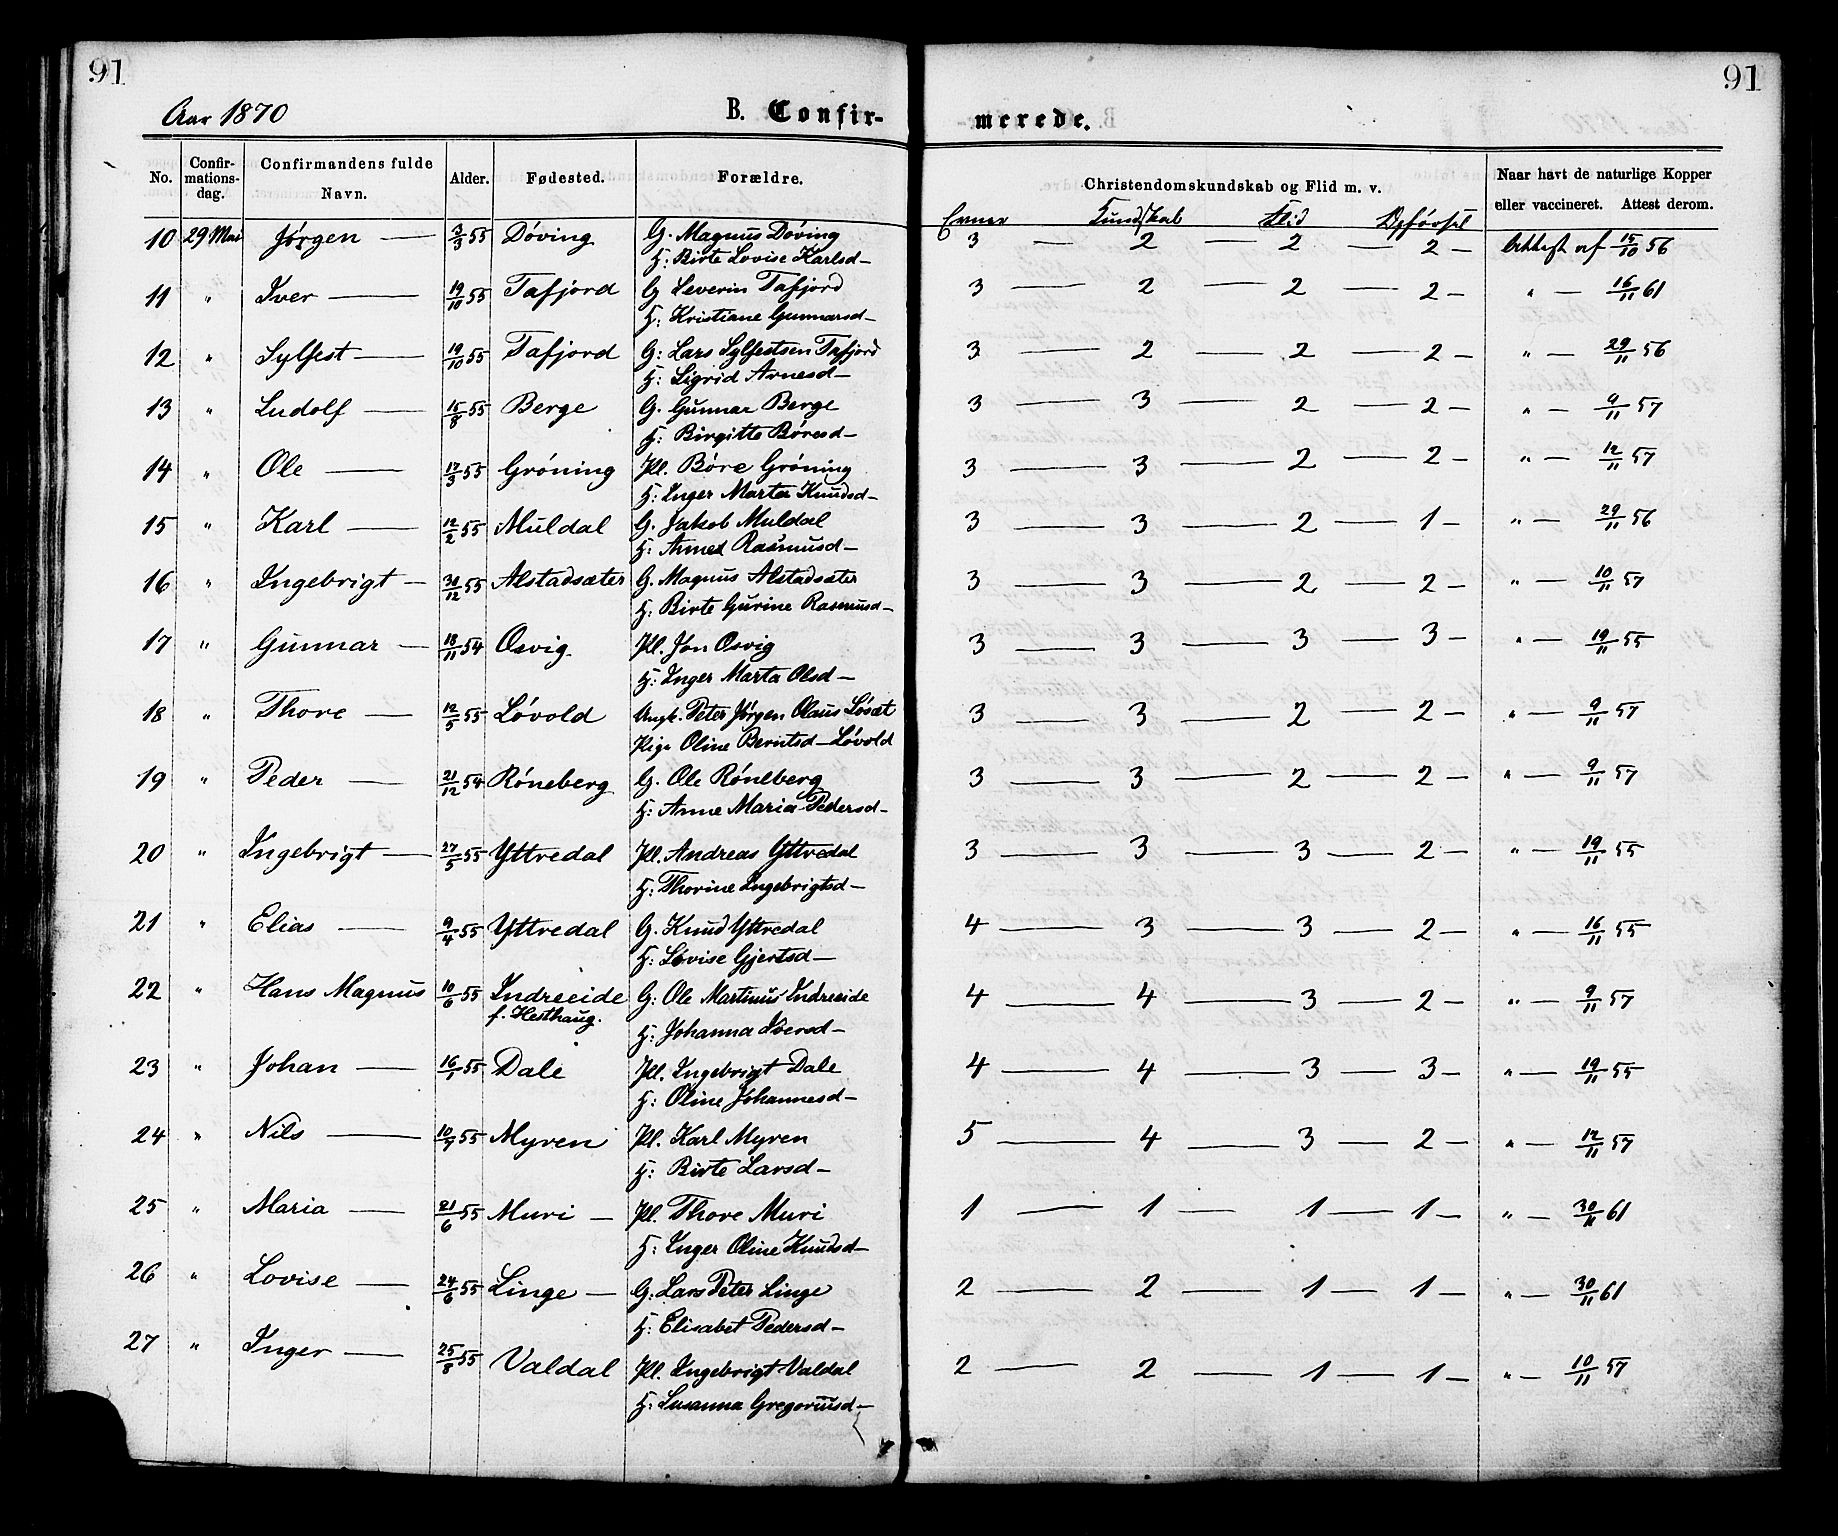 91
91
Aar 1870
B. Confir-
merede.
No.
Confir-mations-dag.
Confirmandens fulde Navn.
Alder.
Fødested.
Forældre.
Christendomskundskab og Flid m. v.
Naar havt de naturlige Kopper eller vaccineret. Attest derom.
Evner Kundskab Flid Opförsel
10 29 Mai Jørgen — 3/3 55 Döving G. Magnus Döving 3 — 2 — 2 — 2 — Attest af 15/10 56
H: Birte Lovise Karlsd—
11 " Iver — 19/10 55 Tafjord G Severin Tafjord 3 — 2 — 2 — 2 — " — 16/11 61
H: Kristiane Gunnarsd—
12 " Sylfest — 19/10 55 Tafjord G: Lars Sylfestsen Tafjord 3 — 2 — 2 — 2 — " — 29/11 56
H: Sigrid Arnesd—
13 " Ludolf — 15/8 55 Berge G. Gunnar Berge 3 — 3 — 2 — 2 — " — 9/11 57
H: Birgitte Böresd—
14 " Ole — 17/3 55 Gröning Pl. Böre Gröning 3 — 3 — 2 — 2 — " — 12/11 57
H: Inger Marta Knudsd—
15 " Karl — 12/2 55 Muldal G. Jakob Muldal 3 — 3 — 2 — 1 — " — 29/11 56
H: Rasmusd—
16 " Ingebrigt — 30/12 55 Alstadsæter G. Magnus Alstadsæter 3 — 3 — 2 — 2 — " — 10/11 57
H: Birte Gurine Rasmusd—
17 " Gunnar — 18/11 54 Osvig Pl. Jon Osvig 3 — 3 — 3 — 3 — " — 19/11 55
H: Inger Marta Olsd—
18 " Thore — 12/5 55 Lövold Ungk. Peter Jörgen Olaus Lösæt 3 — 3 — 2 — 2 — " — 9/11 57
Pige Oline Berntsd—Lövold
19 " Peder — 21/12 54 Röneberg G. Ole Röneberg 3 — 3 — 2 — 2 — " — 9/11 57
H: Anne Maria Pedersd—
20 " Ingebrigt — 27/5 55 Yttredal Pl. Andreas Yttredal 3 — 3 — 3 — 2 — " — 19/11 55
H: Thorine Ingebrigtsd—
21 " Elias — 9/4 55 Yttredal G. Knud Yttredal 4 — 3 — 3 — 2 — " — 16/11 55
H: Lovise Gjertsd—
22 " Hans Magnus 10/6 55 Indreeide G: Ole Martinus Indreeide 4 — 4 — 3 — 2 — " — 9/11 57
f. Hesthaug.
H: Johanna Iversd—
23 " Johan — 16/1 55 Dale Pl. Ingebrigt Dale 4 — 4 — 3 — 3 — " — 19/11 55
H: Oline Johannesd—
24 " Nils — 10/7 55 Myren Pl. Karl Myren 5 — 4 — 3 — 2 — " — 12/11 57
H: Birte Larsd—
25 " Maria — 21/6 55 Muri — Pl. Thore Muri 1 — 1 — 1 — 1 — " — 30/11 61
H: Inger Oline Knudsd—
26 " Lovise — 24/6 55 Linge — G: Lars Peter Linge 2 — 2 — 1 — 1 — " — 30/11 61
H: Elisabet Pedersd—
27 " Inger — 25/8 55 Valdal Pl. Ingebrigt Valdal 2 — 2 — 1 — 1 — " — 10/11 57
H: Susanna Gregoriusd—